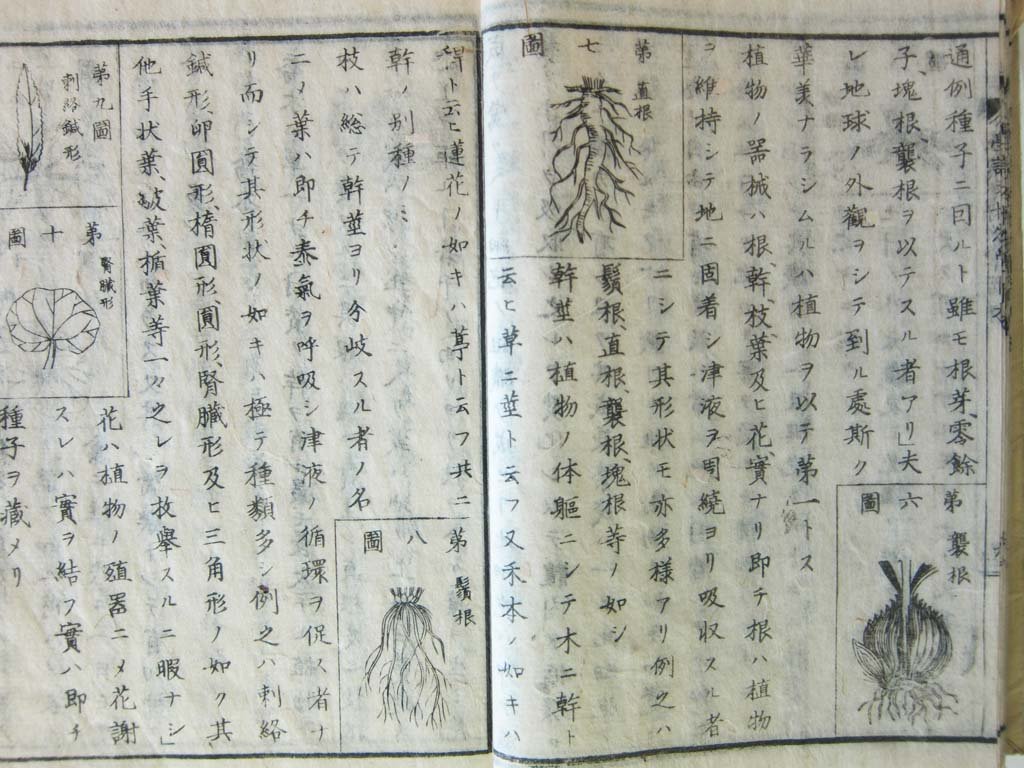 通例種子ニ回ルト雖モ根芽、零餘
子、塊根、襲根ヲ以テスル者アリ」夫
レ地球ノ外觀ヲシテ到ル處斯ク
華美ナラシムルハ植物ヲ以テ第一トス
植物ノ器械ハ根、幹、枝、葉及ヒ花、實ナリ即チ根ハ植物
ヲ維持シテ地ニ固着シ津液ヲ周繞ヨリ吸収スル者
ニシテ其形状モ亦多様アリ例之ハ
鬚根、直根、襲根、塊根等ノ如シ
幹莖ハ植物ノ体軀ニシテ木ニ幹ト
云ヒ草ニ莖ト云フ又禾本ノ如キハ
第六圖
襲根
第七圖
直根
稈ト云ヒ蓮花ノ如キハ葶ト云フ共ニ
幹ノ别種ノミ
枝ハ総テ幹莖ヨリ分岐スル者ノ名
ニメ葉ハ即チ泰氣ヲ呼吸シ津液ノ循環ヲ促ス者ナ
リ而シテ其形状ノ如キハ極テ種類多シ例之ハ刺絡
鍼形、卵圓形、楕圓形、圓形、腎臓形及ヒ三角形ノ如ク其
他手状葉、歧葉、楯葉等一々之レヲ枚舉スルニ暇ナシ」
花ハ植物ノ殖器ニメ花謝
スレハ實ヲ結フ實ハ即チ
種子ヲ藏メリ
第八圖
鬚根
第九圖
刺絡鍼形
第十圖
腎臓形